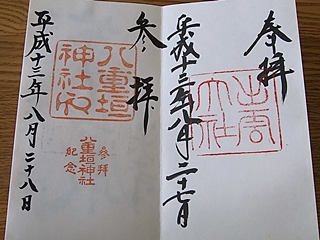 奉拝
出雲大社
平成十三年八月二十七日
参拝
八重垣神社印
参拝
八重垣神社
紀念
平成十三年八月二十八日